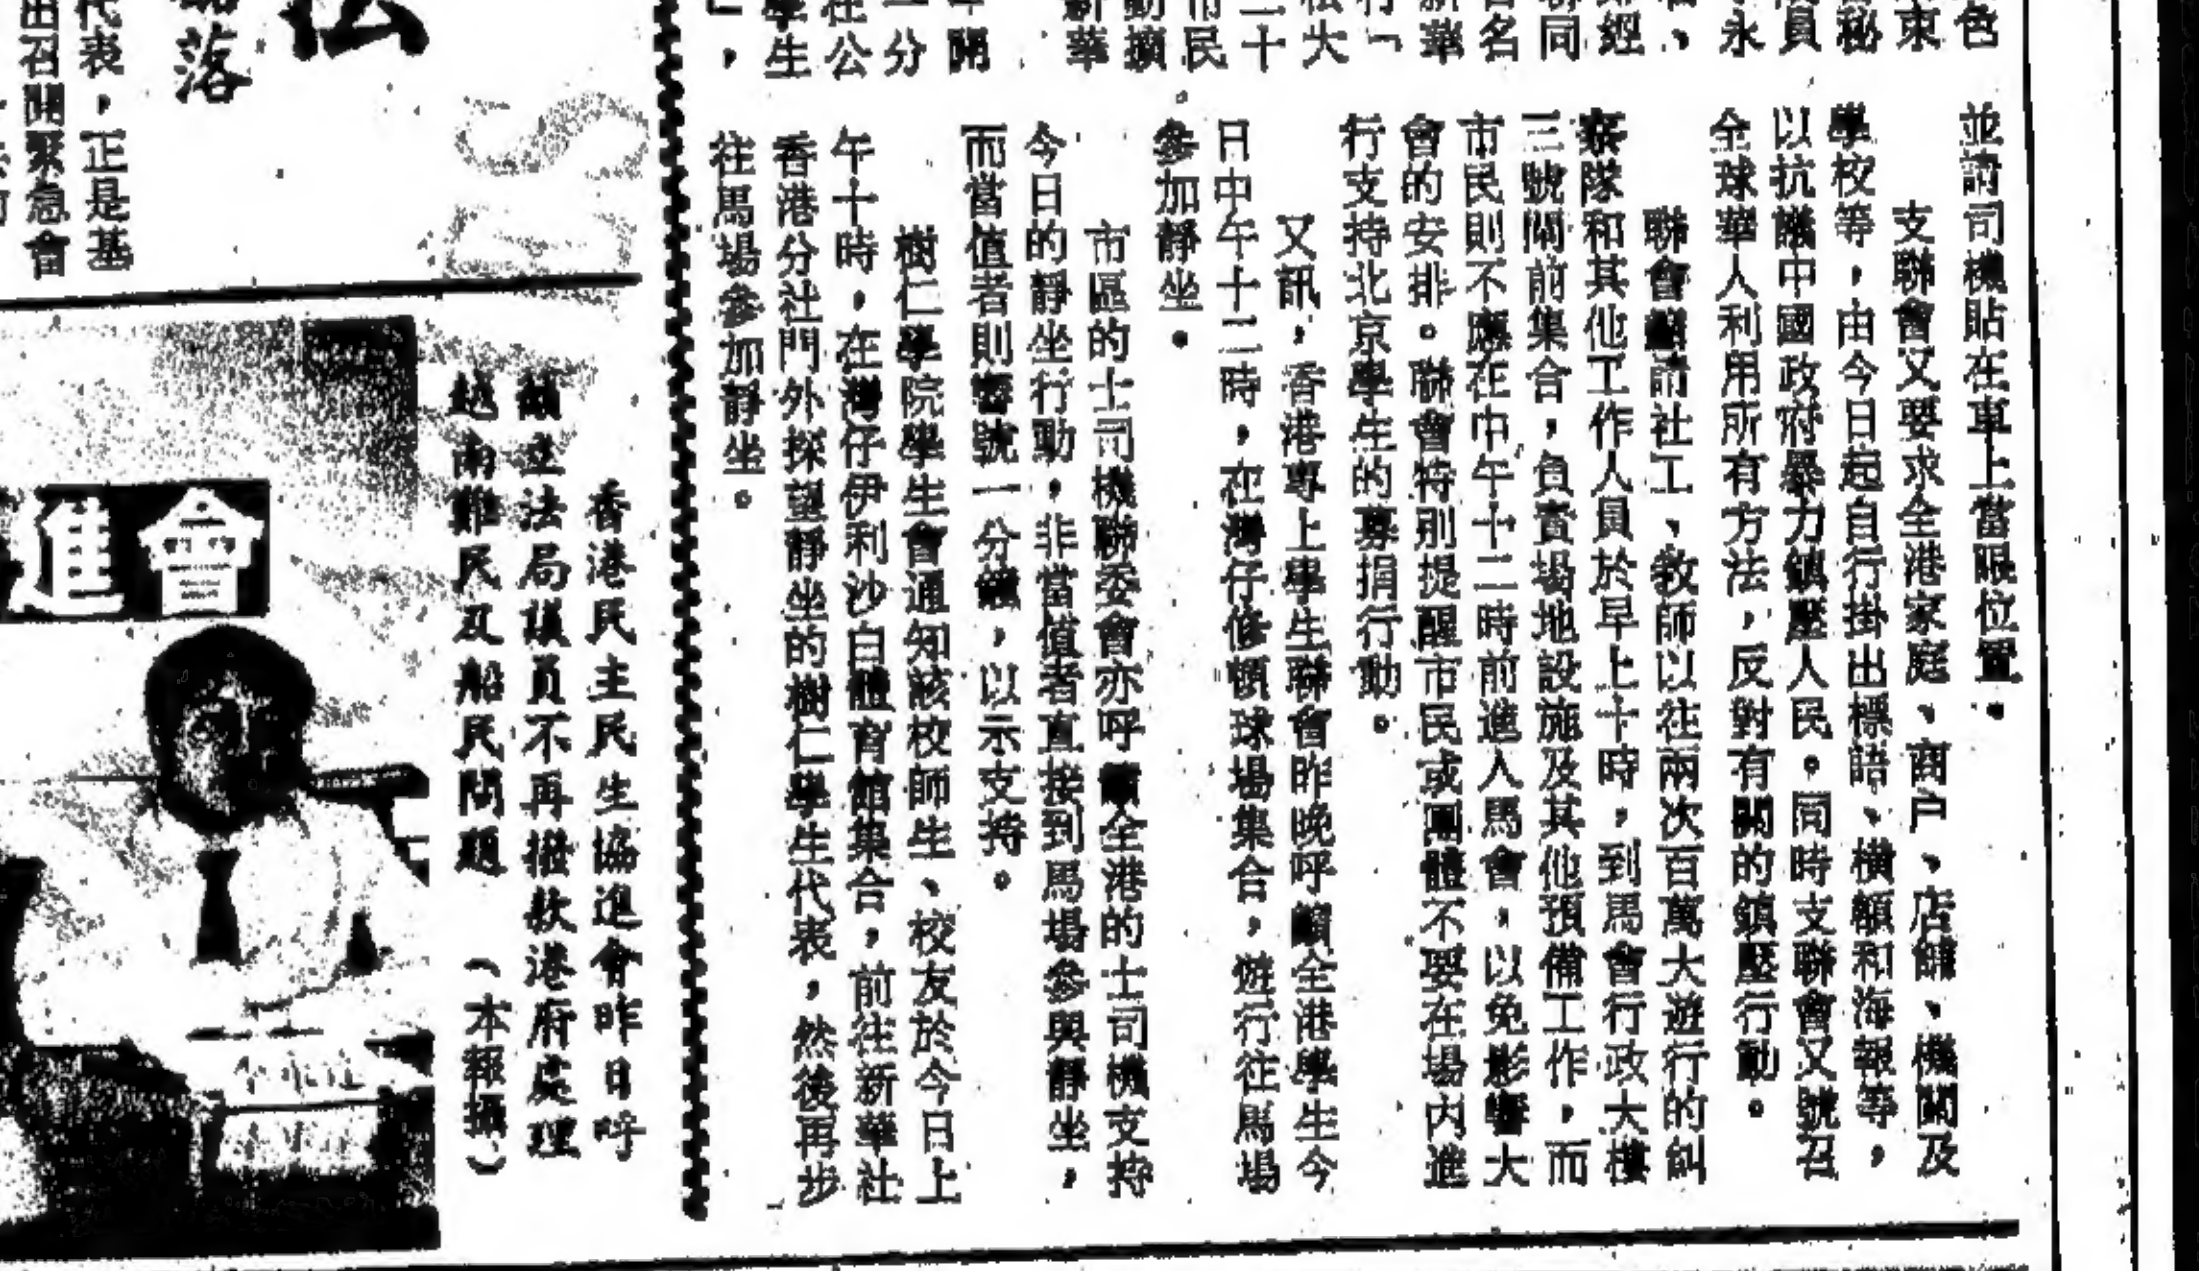 並請司機貼在車上當眼位置。
支聯會又要求全港家庭、商户、店舖、機關及
學校等，由今日起自行掛出標語、橫額和海報等，
以抗議中國政府暴力鎮壓人民。同時支聯會又號召
全球華人利用所有方法，反對有關的鎮壓行動。
聯會請社工、教師以往兩次百萬大遊行的糾
察隊和其他工作人員於早上十時，到馬會行政大樓
三號閘前集合，負責場地設施及其他預備工作，而
市民則不應在中午十二時前進入馬會，以免影響大
會的安排。聯會特別提醒市民或團體不要在場内進
行支持北京學生的募捐行動。
又訊，香港專上學生聯會昨晚呼籲全港學生今
日中午十二時，在灣仔修頓球場集合，遊行往馬場
參加靜坐。
市區的士司機聯委會亦呼籲全港的士司機支持
今日的靜坐行動，非當值者直接到馬場參與靜坐，
而當值者則響號一分鐘，以示支持。
樹仁學院學生會通知該校師生、校友於今日上
午十時，在灣仔伊利沙白體育館集合，前往新華社
香港分社門外探望靜坐的樹仁學生代表，然後再步
往馬場參加靜坐。
香港民主民生協進會昨日呼
籲立法局議員不再撥款港府處理
越南難民及船民問題 （本報攝）
進會
落
代表，正是基
出召開緊急會